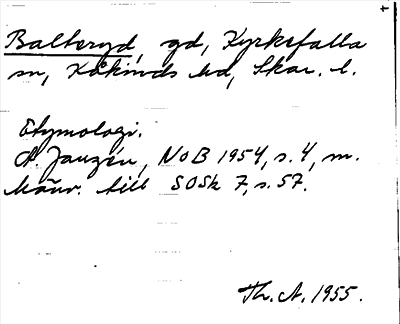 Balteryd, gd, Kyrkefalla
sn, Kåkinds hd, Skar. l.
Etymologi.
A. Janzén, NoB 1954, s. 4, m.
hänv. till SOSk 7, s. 57.
Th. A. 1955.